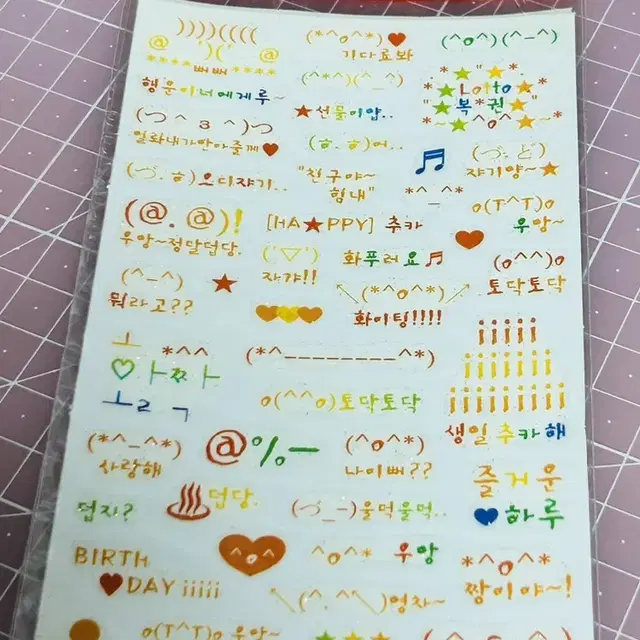 ))))((((
@ ')(' @
****뻐뻐****
행운이너에게루~
(*^o^*)♥
기다료봐
(^o^)(^-^)
(^*^)(^_^)
★선물이얍..
*★"★"★*
*★Lotto★*
"★복*권★"
*~★^o^★~*
(つ^3^)つ
일화내가만아줄게♥
(ㅎ.ㅎ)어..
(づ.ㅎ)으디쟈기..
"친구야~
형내"
♬
*^_^*
(づ.ど)
쟈기얌~★
(@.@)!
우앙~정말덥당.
[HA★PPY] 추카
o(T^T)o
우앙~
♥
('▽')
자갸!!
화푸러요♬
(o^^)o
토닥토닥
(^-^)
뭐라고??
★
\(*^o^*)/
화이팅!!!!
iiiii
iiiiiiiii
iiiiiiiiiii
생일추카해
ㅗ *^^
♡.ㅏㅉㅏ
ㅗㄹㄱ
(*^--------^*)
o(^^o)토닥토닥
(*^_^*)
사랑해
@%-
(^o^*)
나이뻐??
즐거운
♥하루
덥지?
♨덥당.
(づ_-)울먹울먹..
BIRTH
♥DAY iiiii
^o^
^o^* 우앙
\(^.^\)영차~
*^o^*
짱이야~!
o(T^T)o 우앙~